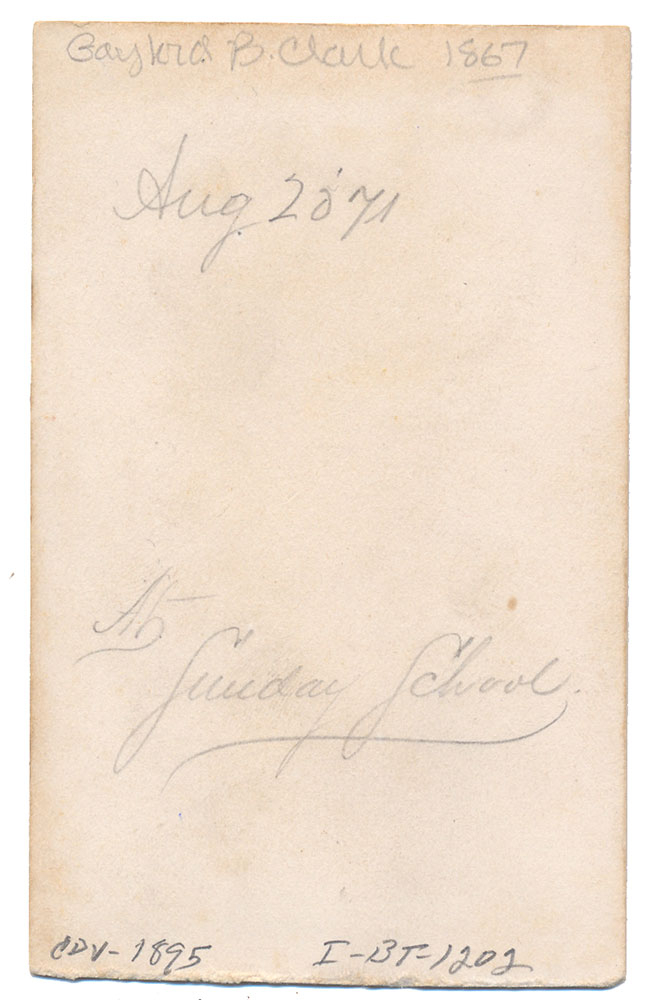 Gaylord B. Clark 1867
Aug 20 71
At
Sunday School.
CDV-1895 I-BT-1202